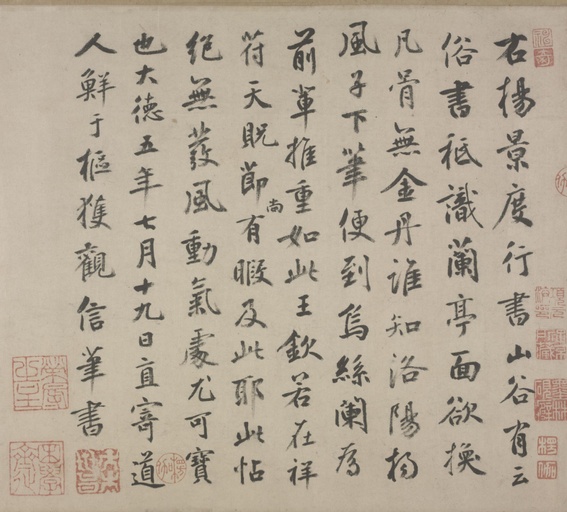 右楊景度行書山谷有云
俗書秪識蘭亭面欲換
凡骨無金丹誰知洛陽楊
風子下筆便到烏絲闌為
前輩推重如此王欽若在祥
苻天貺節尚有暇及此耶此帖
絕無蕟風動氣處尤可寶
也大德五年七月十九日直寄道
人鮮于樞獲觀信筆書